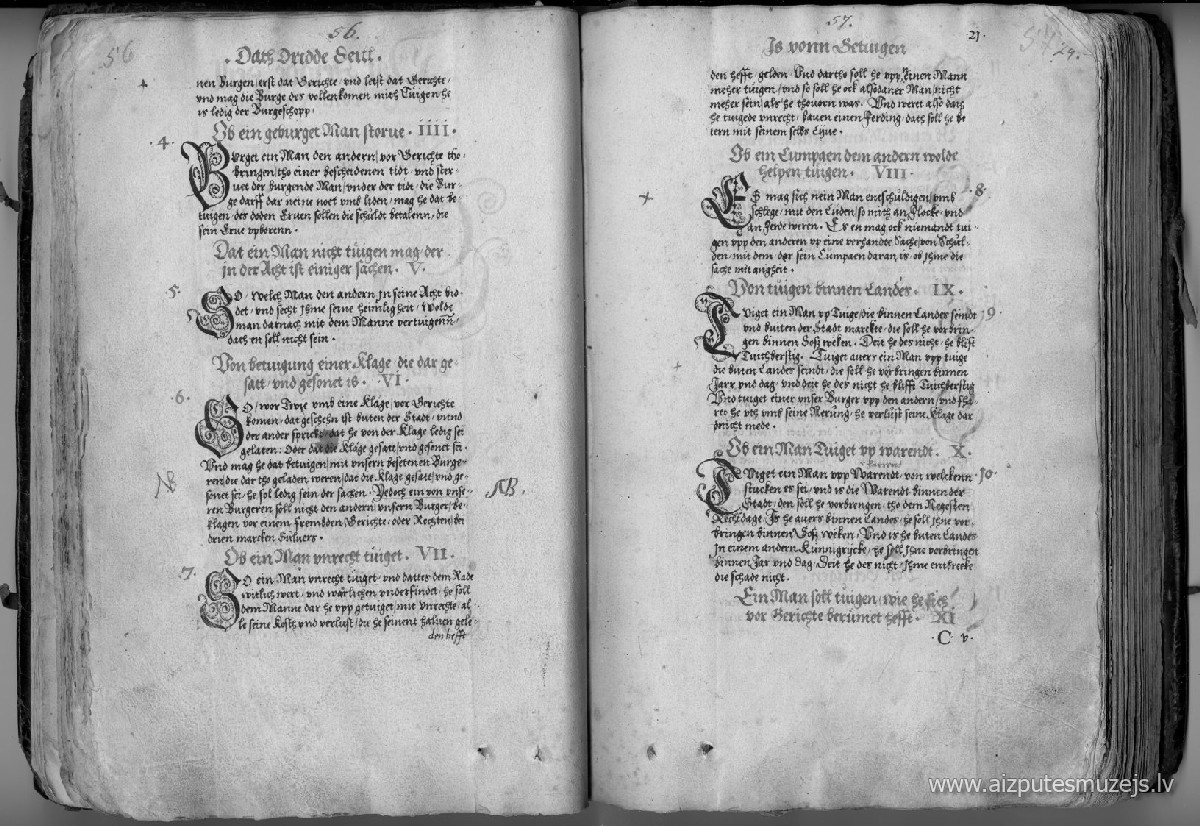 56
56.
Dath Dridde Teill.
nen Burgen erst dat Gerichte, vnd leist dat Gerichte,
vnd mag die Burge des vollenkomen mith Tuigen he
is ledig der Burgeschopp.
Ob ein geburget Man storue. IIII.
4.
Burget ein Man den andern, vor Gerichte tho
bringen, tho einer bescheidenen tidt, vnd ster-
uet der burgende Man, vnder der tidt, die Bur-
ge darff dar neine noet vmb liden, mag he dat be-
tuigen, des doden Eruen sollen die schuldt betalenn, die
sein Erue vpberenn.
Dat ein Man nicht tuigen mag, der
jn der Acht ist einiger sachen. V.
5.
SO, welch Man den andern jn seine Acht bid-
det, vnd secht jhme seine heimligheit, Wolde
man darnach mit dem Manne vertuigenn,
dath en soll nicht sein.
Von betuigung einer Klage, die dar ge-
satt, vnd gesonet is. VI.
6.
SO, wor Twie vmb eine Klage, vor Gerichte
komen, dat geschehn ist buten der Stadt, vnnd
der ander sprickt, dat he von der Klage ledig sei
gelaten, Oder dat die Klage gesatt, vnd gesonet sei,
Vnd mag he dat betuigen, mit vnsern besetenen Burge-
ren, die dar tho geladen weren, dat die Klage gesatt, vnd ge-
sonet sei, he sol ledig sein der sachen. Jedoch ein von vnse-
ren Burgeren soll nicht den andern vnsern Burger, be-
klagen vor einem frembden Gerichte, oder Rechten, bei
dreien marcken Suluers.
NB
NB.
Ob ein Man vnrecht tuiget. VII.
7.
SO ein Man vnrecht tuiget, vnd dattes dem Rade
witlich wert, vnd warlichen vnderfindet, he soll
dem Manne dar he vpp getuiget, mit vnrechte, al-
le seine Kost, vnd verlust, da he seinent haluen gele-
den hefft
57.
Is vonn Getuigen
21.
den hefft, gelden, Vnd dartho soll he vpp, einen Mann
meher tuigen, vnd so soll he ock alsodaner Man nicht
meher sein, als he thouorn was. Vnd weret also dath
he tuigede vnrecht, bauen einen Ferding, dath soll he be-
tern mit seinem selbs Lyue.
Ob ein Cumpaen dem andern wolde
helpen tuigen. VIII.
8.
ES mag sich nein Man entschuldigen, vmb
schlege, mit den Luden, so mith an Plocke, vnd
an Ferde weren. Es en mag ock niemandt tui-
gen vpp den anderen vp eine verhandte Sache, von Schul-
den, mit dem, dar sein Cumpaen daran is, ob jhme die
sache mit angheit.
Von tuigen binnen Landes. IX.
9.
TViget ein Man vp Tuige, die binnen Landes seindt
vnd buiten der Stadt marckte, die soll he vorbrin-
gen binnen Seß weken. Deit he des nicht, he blist
Tuichberstig. Tuiget auers ein Man vpp tuige
die buten Landes seindt, die soll he vorbringen binnen
Jarr vnd dag, vnd deit he des nicht he blifft Tuichberstig
Vnd tuiget einer vnser Burger vpp den andern, vnd fha-
ret he vth vmb seine Nerung, he verlust seine Klage dar
dorcht mede.
Ob ein Man Tuiget vp warendt. X.
10.
TViget ein Man vpp Warendt, von welckenn
stucken es sei, vnd is die Warendt binnen der
Stadt, den soll he vorbringen, tho dem Negesten
Rechtdage, Is he auers binnen Landes, he soll jhne vor-
bringen binnen Seß weken, Vnd is he buten Landes
In einem andern Kunnigrycke, he soll jhne vorbringen
binnen Jar vnd dag, Deit he des nicht, jhme entbreke
die schade nicht.
Ein Man soll tuigen, wie he sich
vor Gerichte berumet hefft. XI
C v.
www.aizputesmuzejs.lv